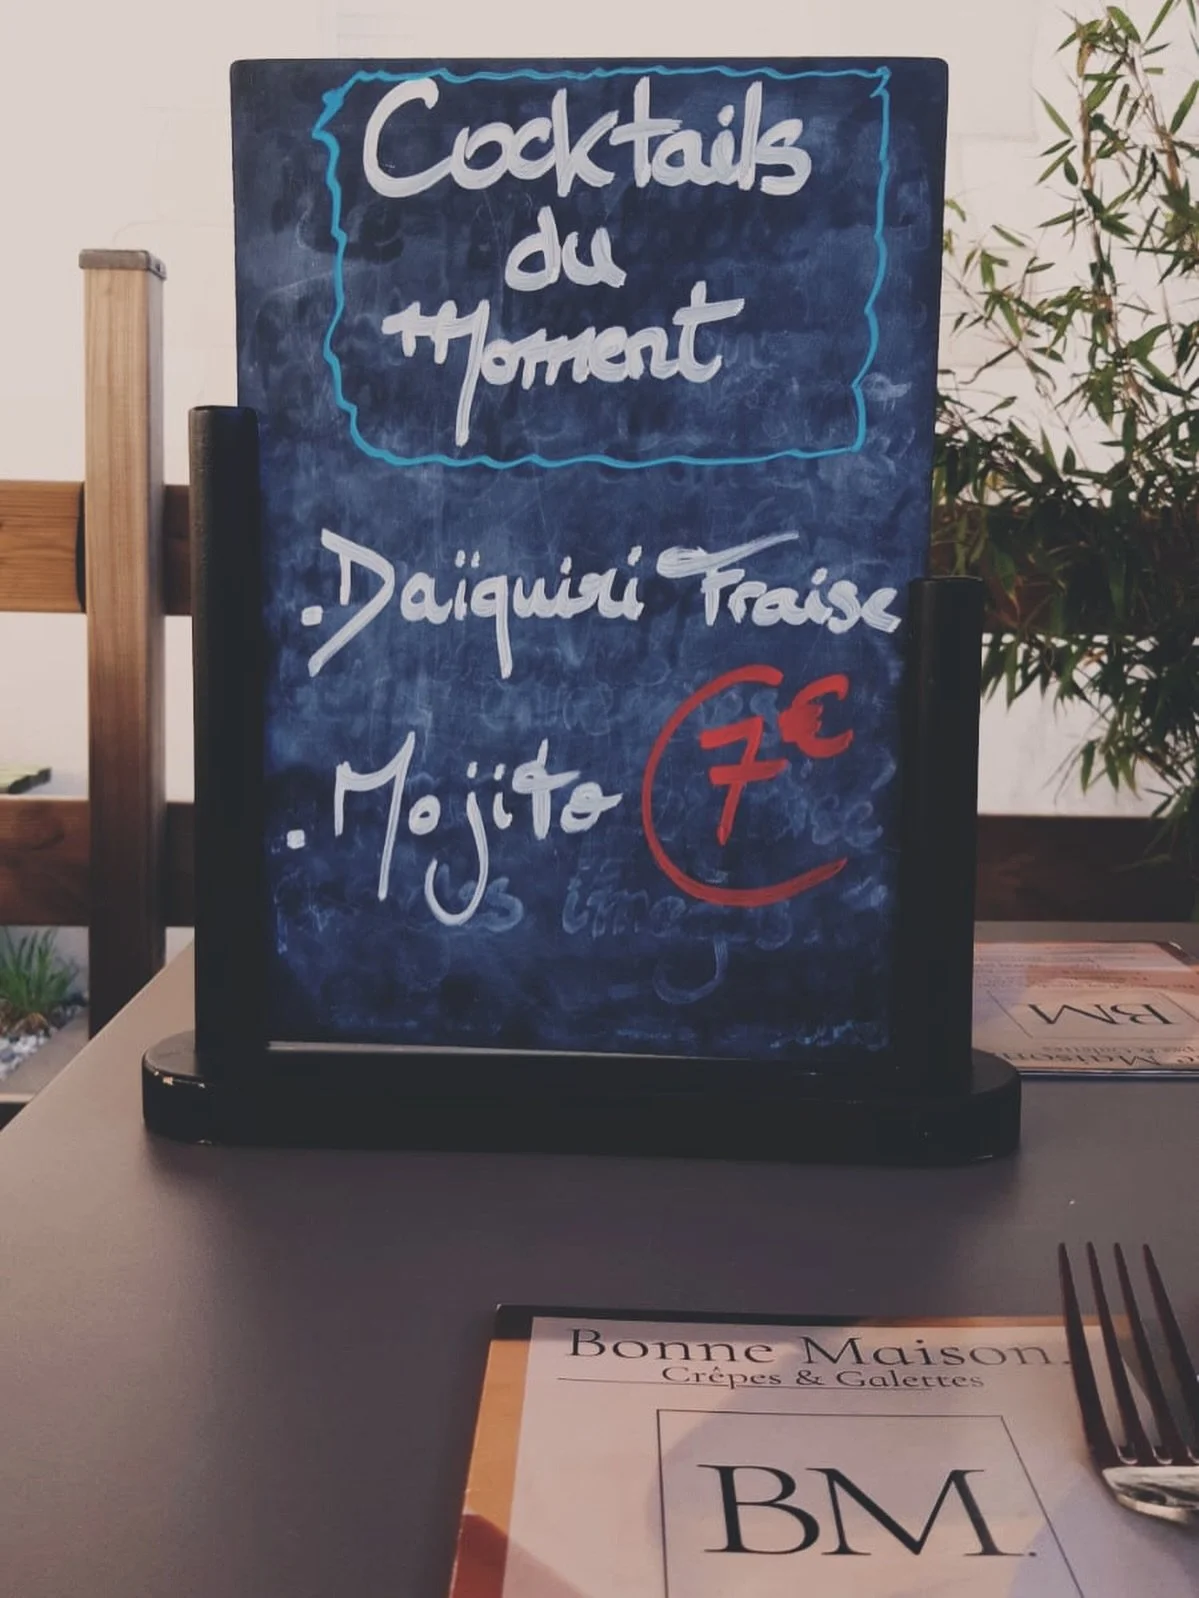 Cocktails
du
Moment
. Daïquiri Fraise
7€
. Mojito
BM
Maison
Bonne Maison.
Crêpes & Galettes
BM.